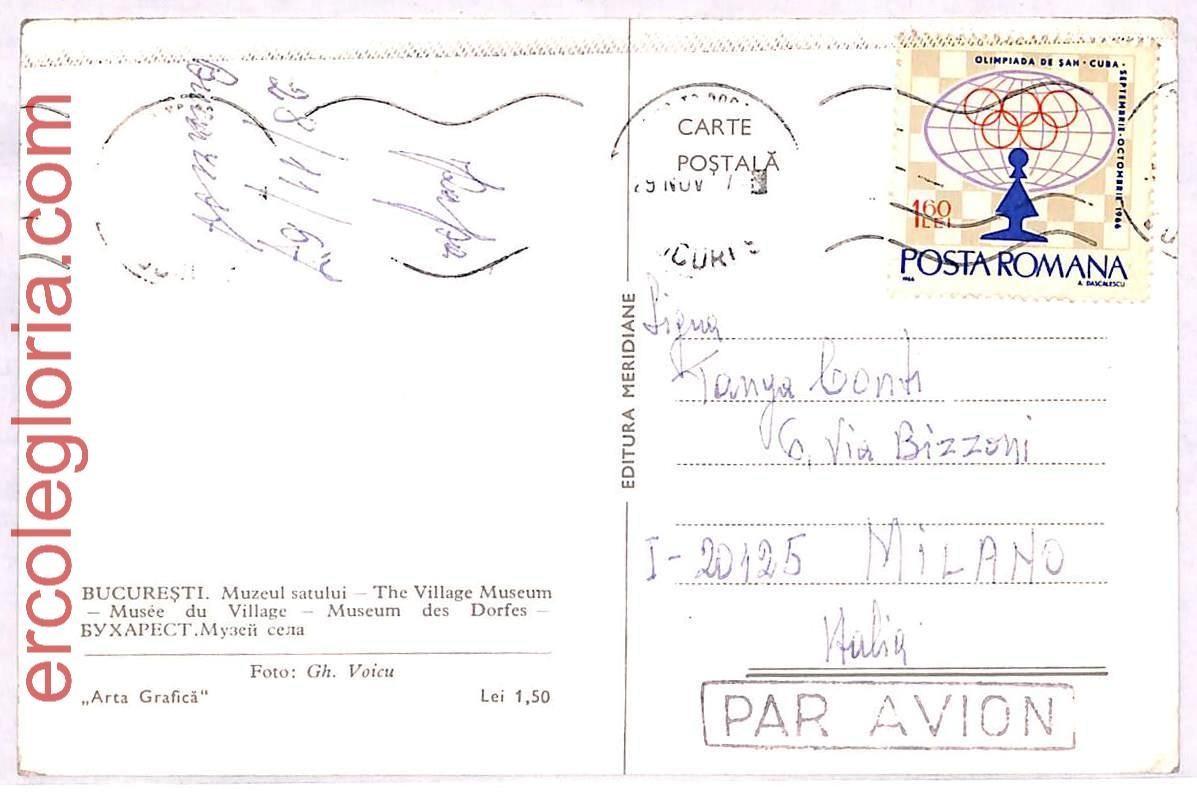 ercolegloria.com
București
28/11/67
Papa
BUCUREȘTI. Muzeul satului – The Village Museum
– Musée du Village – Museum des Dorfes –
БУХАРЕСТ.Музей села
Foto: Gh. Voicu
„Arta Grafică“
Lei 1,50
EDITURA MERIDIANE
CARTE
POȘTALĂ
29 NOV
OLIMPIADA DE ȘAH · CUBA ·
SEPTEMBRIE-OCTOMBRIE 1966
1 60
LEI
POSTA ROMANA
1966
A. DASCALESCU
Signa
Tanya Conti
6, Via Bizzoni
I-20125 MILANO
Italia
PAR AVION